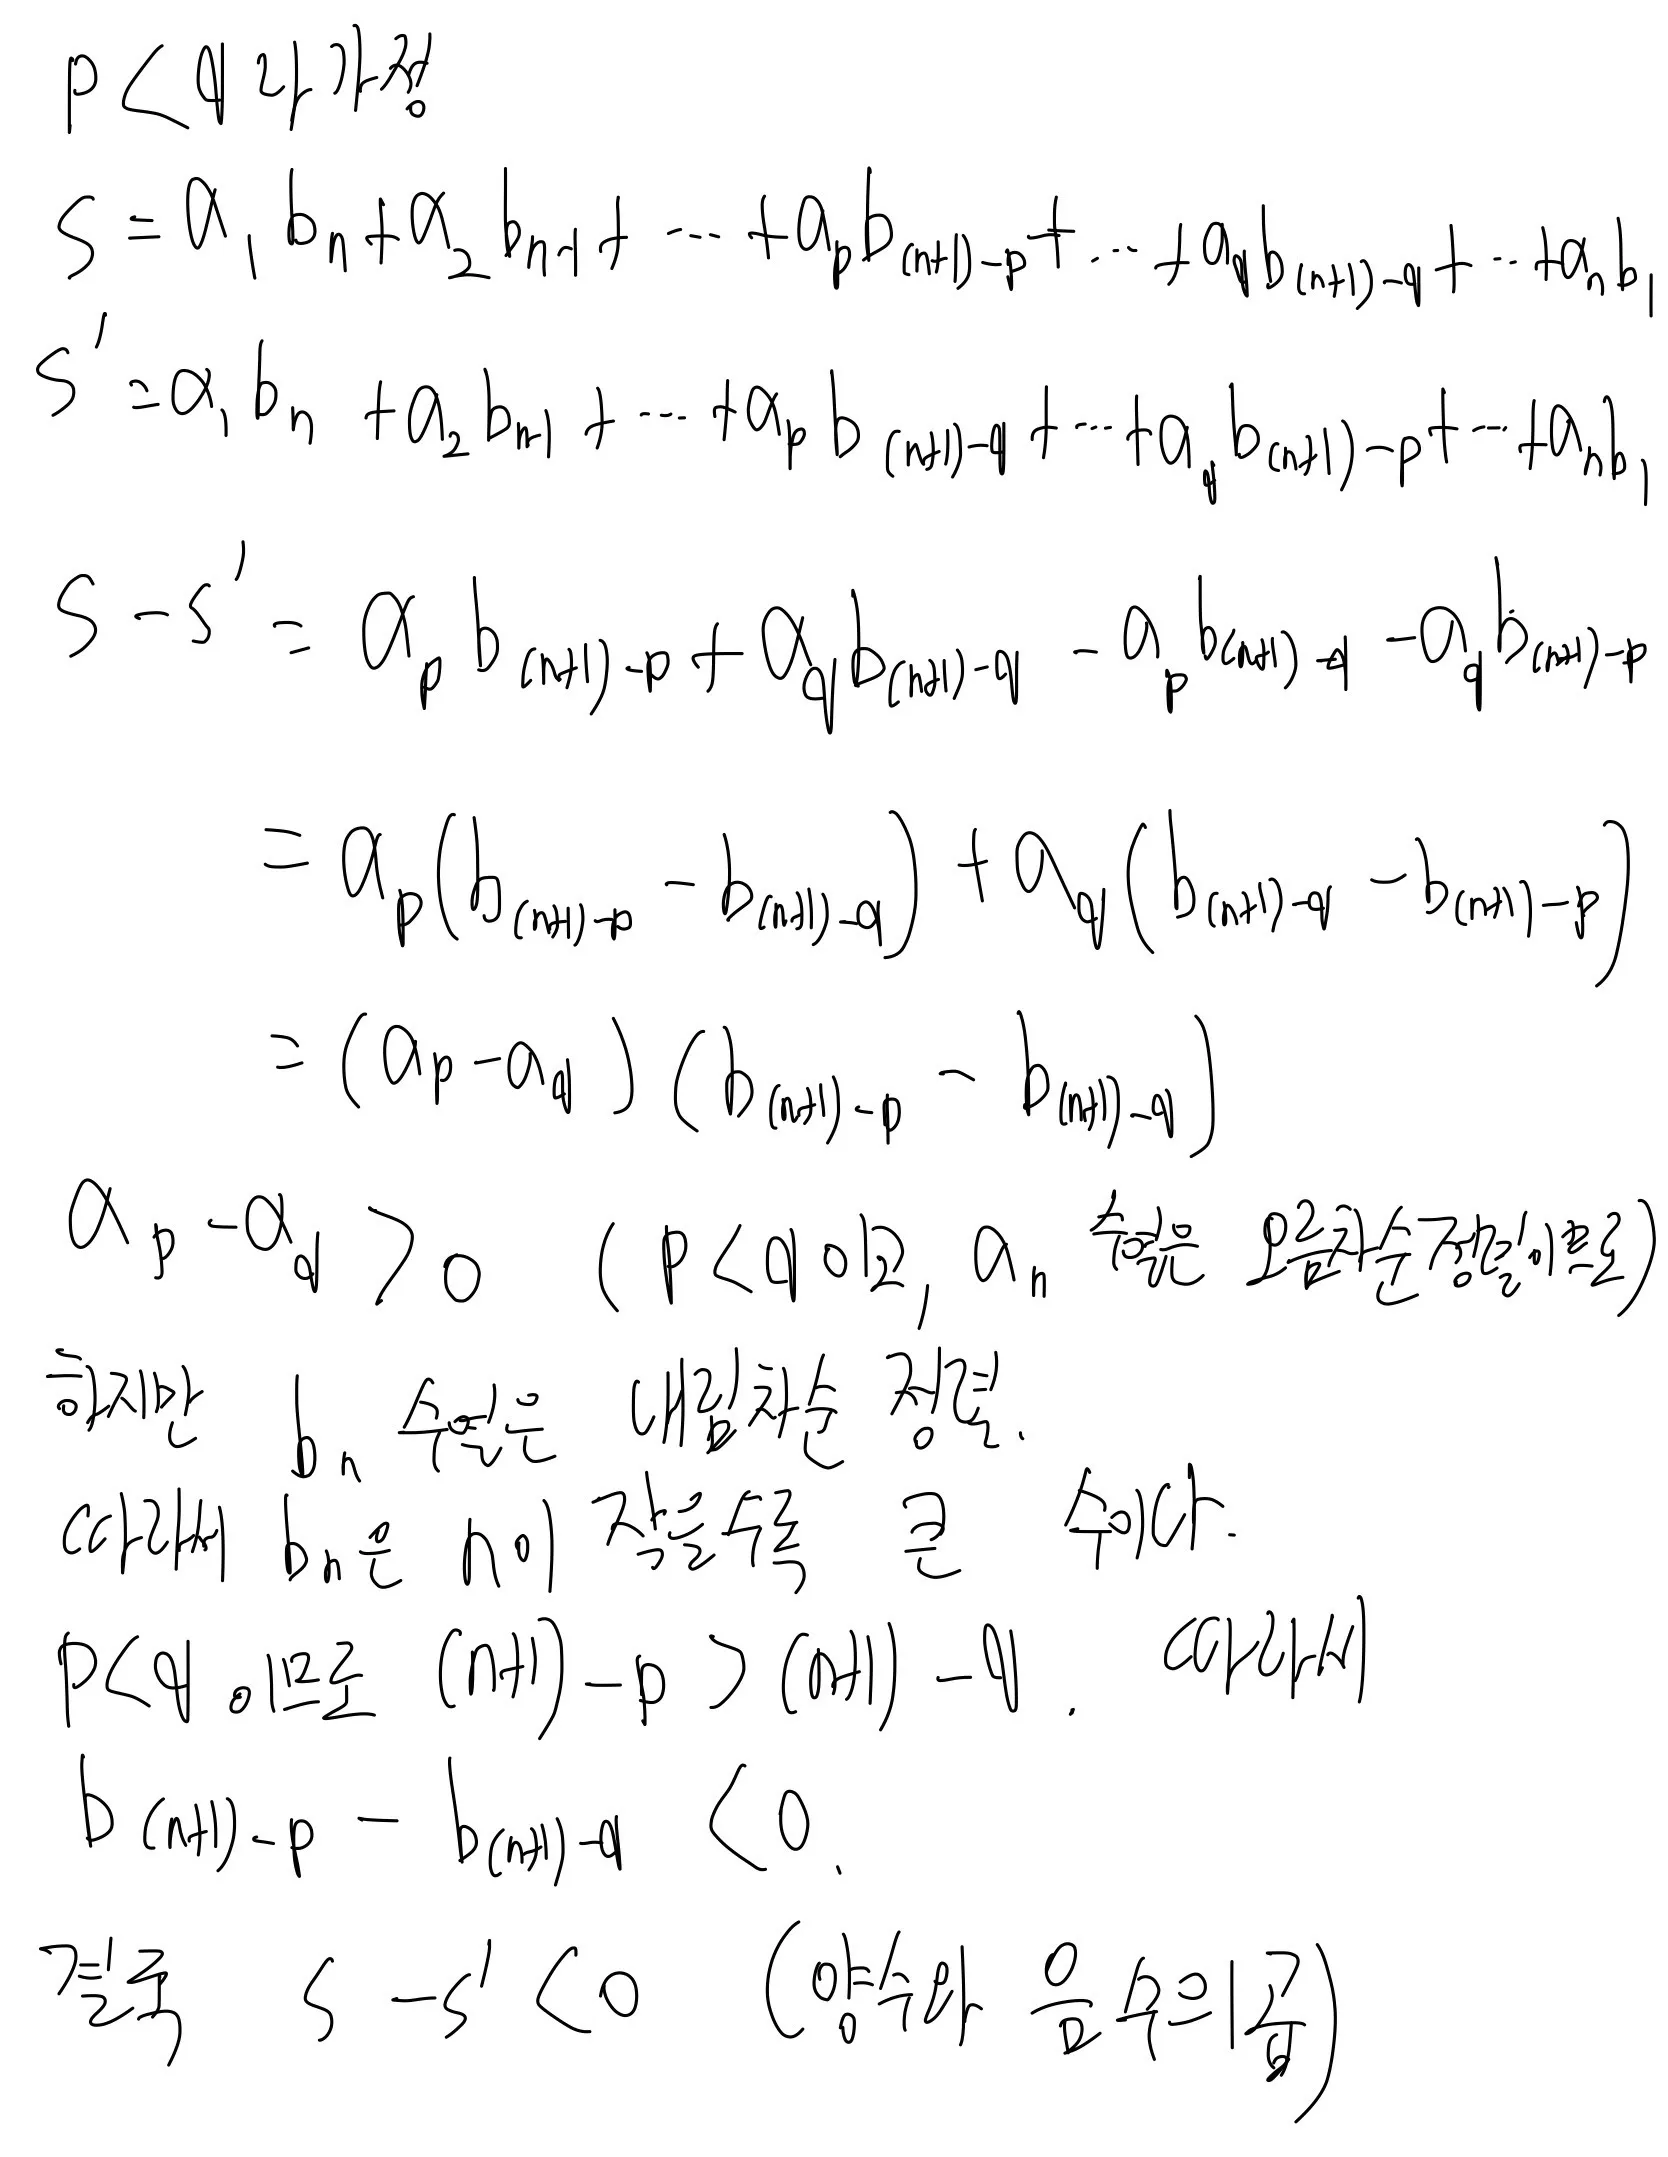 p < q 라 가정
S = a₁bₙ + a₂bₙ₋₁ + ... + aₚb₍ₙ₊₁₎₋ₚ + ... + a_q b_(n+1)-q + ... + aₙb₁
S' = a₁bₙ + a₂bₙ₋₁ + ... + aₚb_(n+1)-q + ... + a_q b_(n+1)-p + ... + aₙb₁
S - S' = a_p b_(n+1)-p + a_q b_(n+1)-q - a_p b_(n+1)-q - a_q b_(n+1)-p
= a_p (b_(n+1)-p - b_(n+1)-q) + a_q (b_(n+1)-q - b_(n+1)-p)
= (a_p - a_q) (b_(n+1)-p - b_(n+1)-q)
a_p - a_q > 0 (p < q 이고, aₙ 수열은 오름차순정렬이므로)
하지만 bₙ 수열은 내림차순 정렬.
따라서 bₙ은 n이 작을수록 큰 수이다.
p < q 이므로 (n+1)-p > (n+1)-q. 따라서
b_(n+1)-p - b_(n+1)-q < 0.
결국 S - S' < 0 (양수와 음수의 곱)